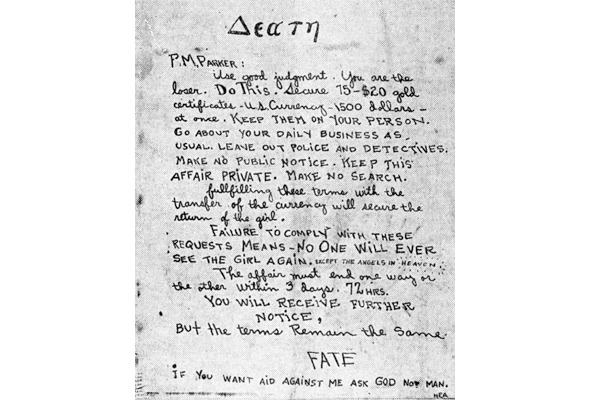 Δεατη
P.M. PARKER:
Use good judgment. You are the
loser. Do This. Secure 75-$20 gold
certificates - U.S. Currency - 1500 dollars -
at once. KEEP THEM ON YOUR PERSON.
GO ABOUT YOUR DAILY BUSINESS AS
USUAL. LEAVE OUT POLICE AND DETECTIVES.
MAKE NO PUBLIC NOTICE. KEEP THIS
AFFAIR PRIVATE. MAKE NO SEARCH.
fullfilling these terms with the
transfer of the currency will secure the
return of the girl.
FAILURE TO COMPLY WITH THESE
REQUESTS MEANS - NO ONE WILL EVER
SEE THE GIRL AGAIN. EXCEPT THE ANGELS IN HEAVEN.
The affair must end one way or
the other within 3 days. 72 HRS.
YOU WILL RECEIVE FURTHER
NOTICE,
But the terms Remain the Same.
FATE
iF YOU WANT AID AGAINST ME ASK GOD NOT MAN.
NEA